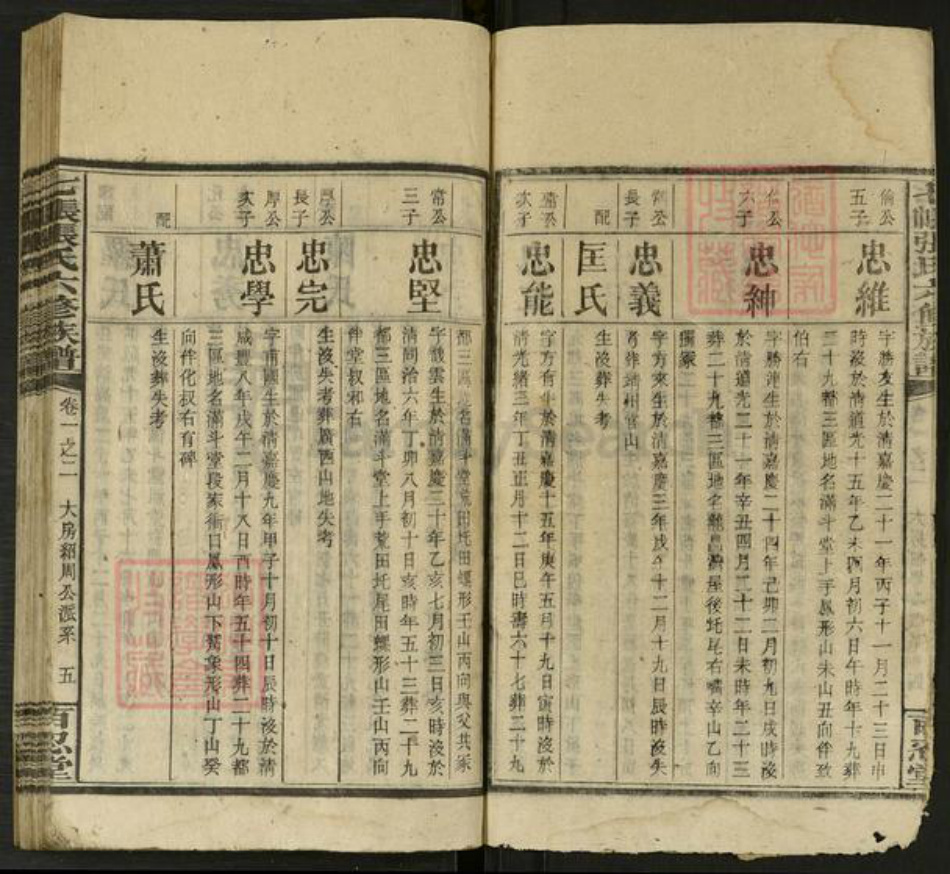 倫公
五子
忠維
字勝友生於清嘉慶二十一年丙子十一月二十三日申
時沒於清道光十五年乙未四月初六日午時年十九葬
二十九都三區地名滿斗堂上手鳳形山未山丑向伴致
伯右
仁公
六子
忠紳
字勝連生於清嘉慶二十四年己卯二月初九日戌時沒
於清道光二十一年辛丑四月二十二日未時年二十三
葬二十九都三區地名 屋後圫尾右嘴辛山乙向
獨冢
長子
忠義
字方來生於清嘉慶三年戊午十二月十九日辰時沒失
考葬靖州官山
配
匡氏
生沒葬失考
常公
次子
忠能
字方有生於清嘉慶十五年庚午五月十九日寅時沒於
清光緒三年丁丑正月十二日巳時壽六十七葬二十九
都三區地名滿斗堂荒田圫田螺形壬山丙向與父共冢
常公
三子
忠堅
字戲雲生於清嘉慶二十年乙亥七月初三日亥時沒於
清同治六年丁卯八月初十日亥時年五十三葬二十九
都三區地名滿斗堂上手荒田圫尾田螺形山壬山丙向
伴堂叔和右
厚公
長子
忠完
生沒失考葬廣西山地失考
厚公
次子
忠學
字甫國生於清嘉慶九年甲子十月初十日辰時沒於清
咸豐八年戊午二月十八日酉時年五十四葬二十九都
三區地名滿斗堂段家衝口鳳形山下鶯象形山丁山癸
向伴化叔右有碑
配
蕭氏
生沒葬失考
張氏六修族譜
卷一之二
大房紹周公派系
五
百忍堂